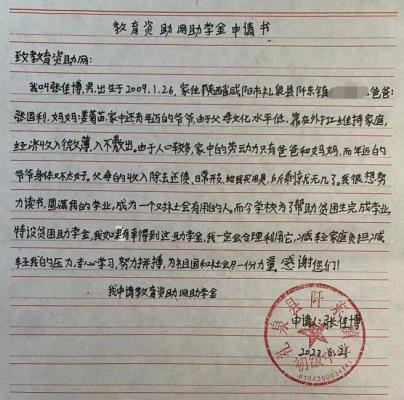 教育资助网助学金申请书
致教育资助网:
我叫张佳博,男,出生于2009.1.26,家住陕西省咸阳市礼泉县阡东镇 爸爸:
张国利,妈妈:姜菊苗,家中还有年迈的爷爷,由于父母文化水平低,靠在外打工维持家庭,
经济收入很微薄,入不敷出。由于人口较多,家中的劳动力只有爸爸和妈妈,而年迈的
爷爷身体又不太好。父母的收入除去还债、日常开支,给我买用具,所剩惊无几了。我很想努
力读书,圆满我的学业,成为一个对社会有用的人,而今学校为了帮助贫困生完成学业
特设贫困助学金,我如果有幸得到这助学金,我一定会合理利用它,减轻家庭负担,减
轻我的压力,专心学习,努力拼搏,为祖国和社会尽一份力量。感谢您们!
我申请教育资助网助学金
申请人:张佳博
2023.6.21
礼泉县阡东镇
初级中学